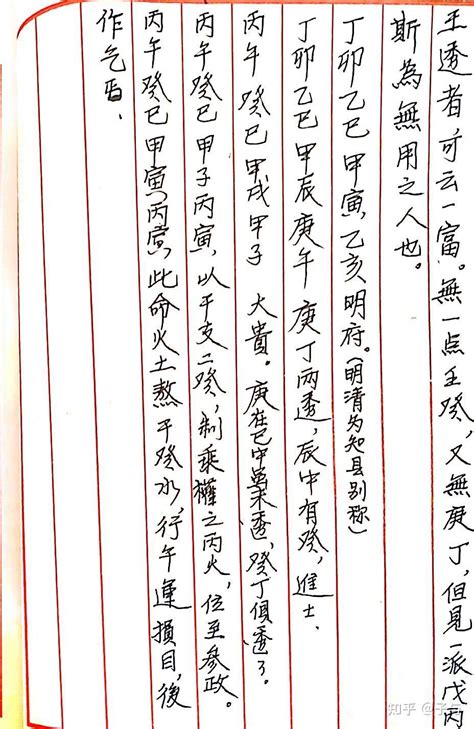 壬透者可云一富。無一点壬癸，又無庚丁，但見一派戊丙
斯為無用之人也。
丁卯乙巳甲寅，乙亥明府。（明清为知县别称）
丁卯乙巳甲辰庚午 庚丁两透，辰中有癸，進士、
丙午癸巳甲戌甲子 大貴。庚在巳中虽未透，癸丁俱透了。
丙午癸巳甲子丙寅，以干支二癸，制乘權之丙火，位至參政。
丙午癸巳甲寅丙寅，此命火土熬干癸水，行午運損目，後
作乞丐、
知乎 @子